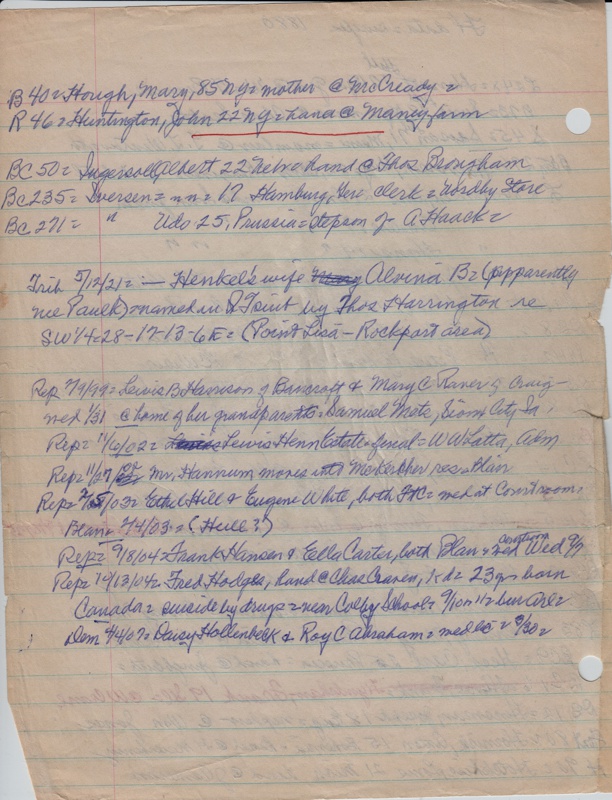 B 40 = Hough, Mary, 85 Ny = mother @ McCready =
R 46 = Huntington, John 22 NY = hand @ Maney farm
BC 50 = Ingersoll Albert 22 Nebr = hand @ Thos Brougham
BC 235 = Iversen = nn = 17 Hamburg, Ger. clerk = Nordby Store
BC 271 = " Udo 25, Prussia = stepson of A Haack =
Trib 5/12/21 = — Henkel's wife Alvina B = (apparently
nee Paulk) = named in Q T suit by Thos Harrington re
SW 1/4 = 28-17-13-6E = (Point Lisa - Rockport area)
Rep 2/9/99 = Lewis B Harrison of Bancroft & Mary C Raver of Craig -
wed 1/31 @ home of her grandparents = Samuel Metz, Sioux City Ia.
Rep = 11/6/02 = Lewis Henn Estate = final = W W Latta, Adm
Rep = 11/27/02 Mr. Hannum moves into McKercher res. Blair
Rep = 2/5/03 = Ethel Hill & Eugene White, both = wed at Court room,
Blair = 2/4/03 = (Hull?)
Rep = 9/8/04 = Frank Hanson & Ella Carter, both Blair = wed Wed 9/7
Rep = 10/13/04 = Fred Hodges, hand @ Chas Craven, = 23 yrs born
Canada = suicide by drugs = near Colby School = 9/10 = bur Arl =
Dem 4/4/07 = Daisy Hollenbeck & Roy C Abraham = wed = 3/30 =